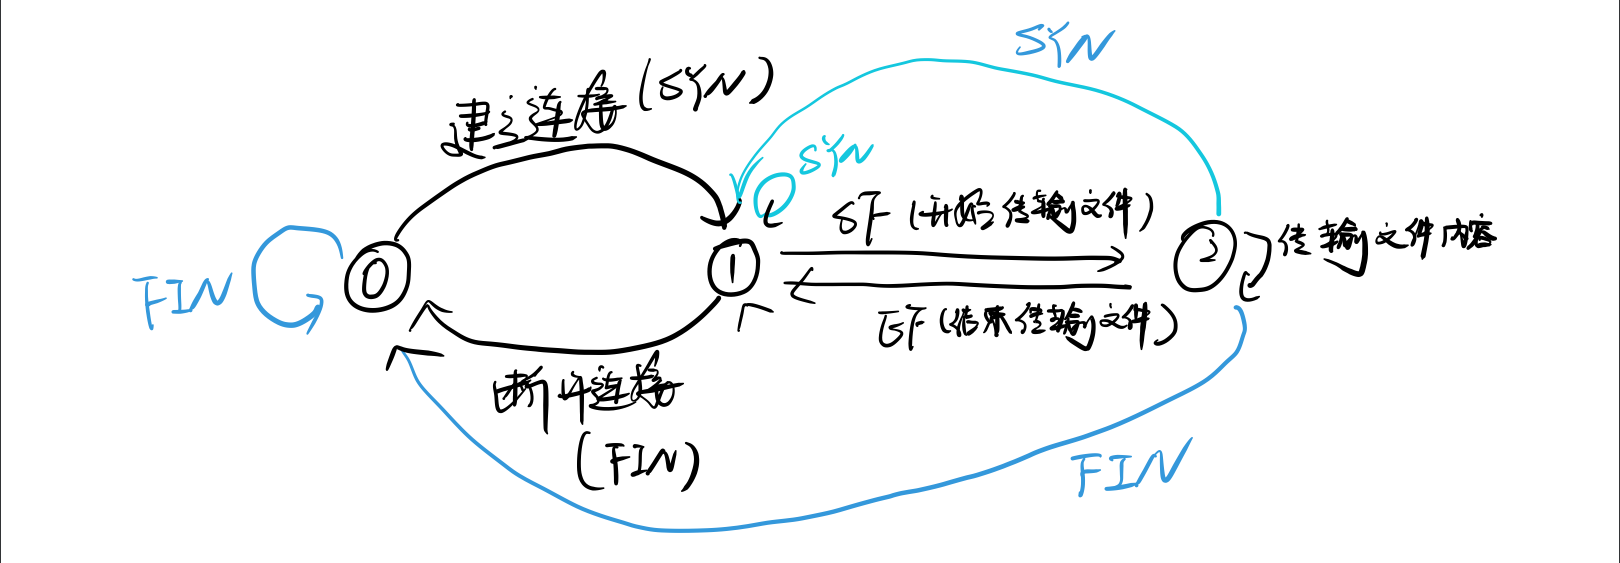 SYN
建立连接(SYN)
SYN
SF (开始传输文件)
0
1
2
传输文件内容
FIN
EF (结束传输文件)
断开连接
(FIN)
FIN